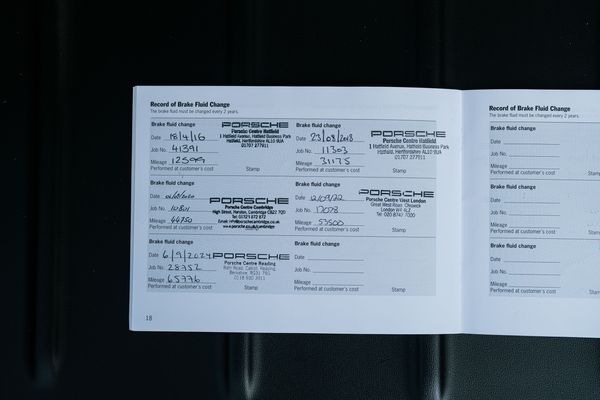 Record of Brake Fluid Change
The brake fluid must be changed every 2 years.
Brake fluid change
Date 18/4/16
Job No. 41391
Mileage 12599
Performed at customer's cost
Stamp
PORSCHE
Porsche Centre Hatfield
1 Hatfield Avenue, Hatfield Business Park
Hatfield, Hertfordshire AL10 9UA
01707 277911
Brake fluid change
Date 23/08/2018
Job No. 11303
Mileage 31175
Performed at customer's cost
Stamp
PORSCHE
Porsche Centre Hatfield
1 Hatfield Avenue, Hatfield Business Park
Hatfield, Hertfordshire AL10 9UA
01707 277911
Brake fluid change
Date
Job No. 10801
Mileage 44750
Performed at customer's cost
Stamp
PORSCHE
Porsche Centre Cambridge
High Street, Harston, Cambridge CB22 7QD
Tel: 01223 872 872
Brake fluid change
Date 12/09/22
Job No. 17078
Mileage 53500
Performed at customer's cost
Stamp
PORSCHE
Porsche Centre West London
Great West Road, Chiswick
London W4
Tel: 020 8742 7000
Brake fluid change
Date 6/9/2024
Job No. 28752
Mileage 65776
Performed at customer's cost
Stamp
PORSCHE
Porsche Centre Reading
Brake fluid change
Date
Job No.
Mileage
Performed at customer's cost
Stamp
18
Record of Brake Fluid Change
The brake fluid must be changed every 2 years.
Brake fluid change
Date
Job No.
Mileage
Performed at customer's cost
Brake fluid change
Date
Job No.
Mileage
Performed at customer's cost
Brake fluid change
Date
Job No.
Mileage
Performed at customer's cost